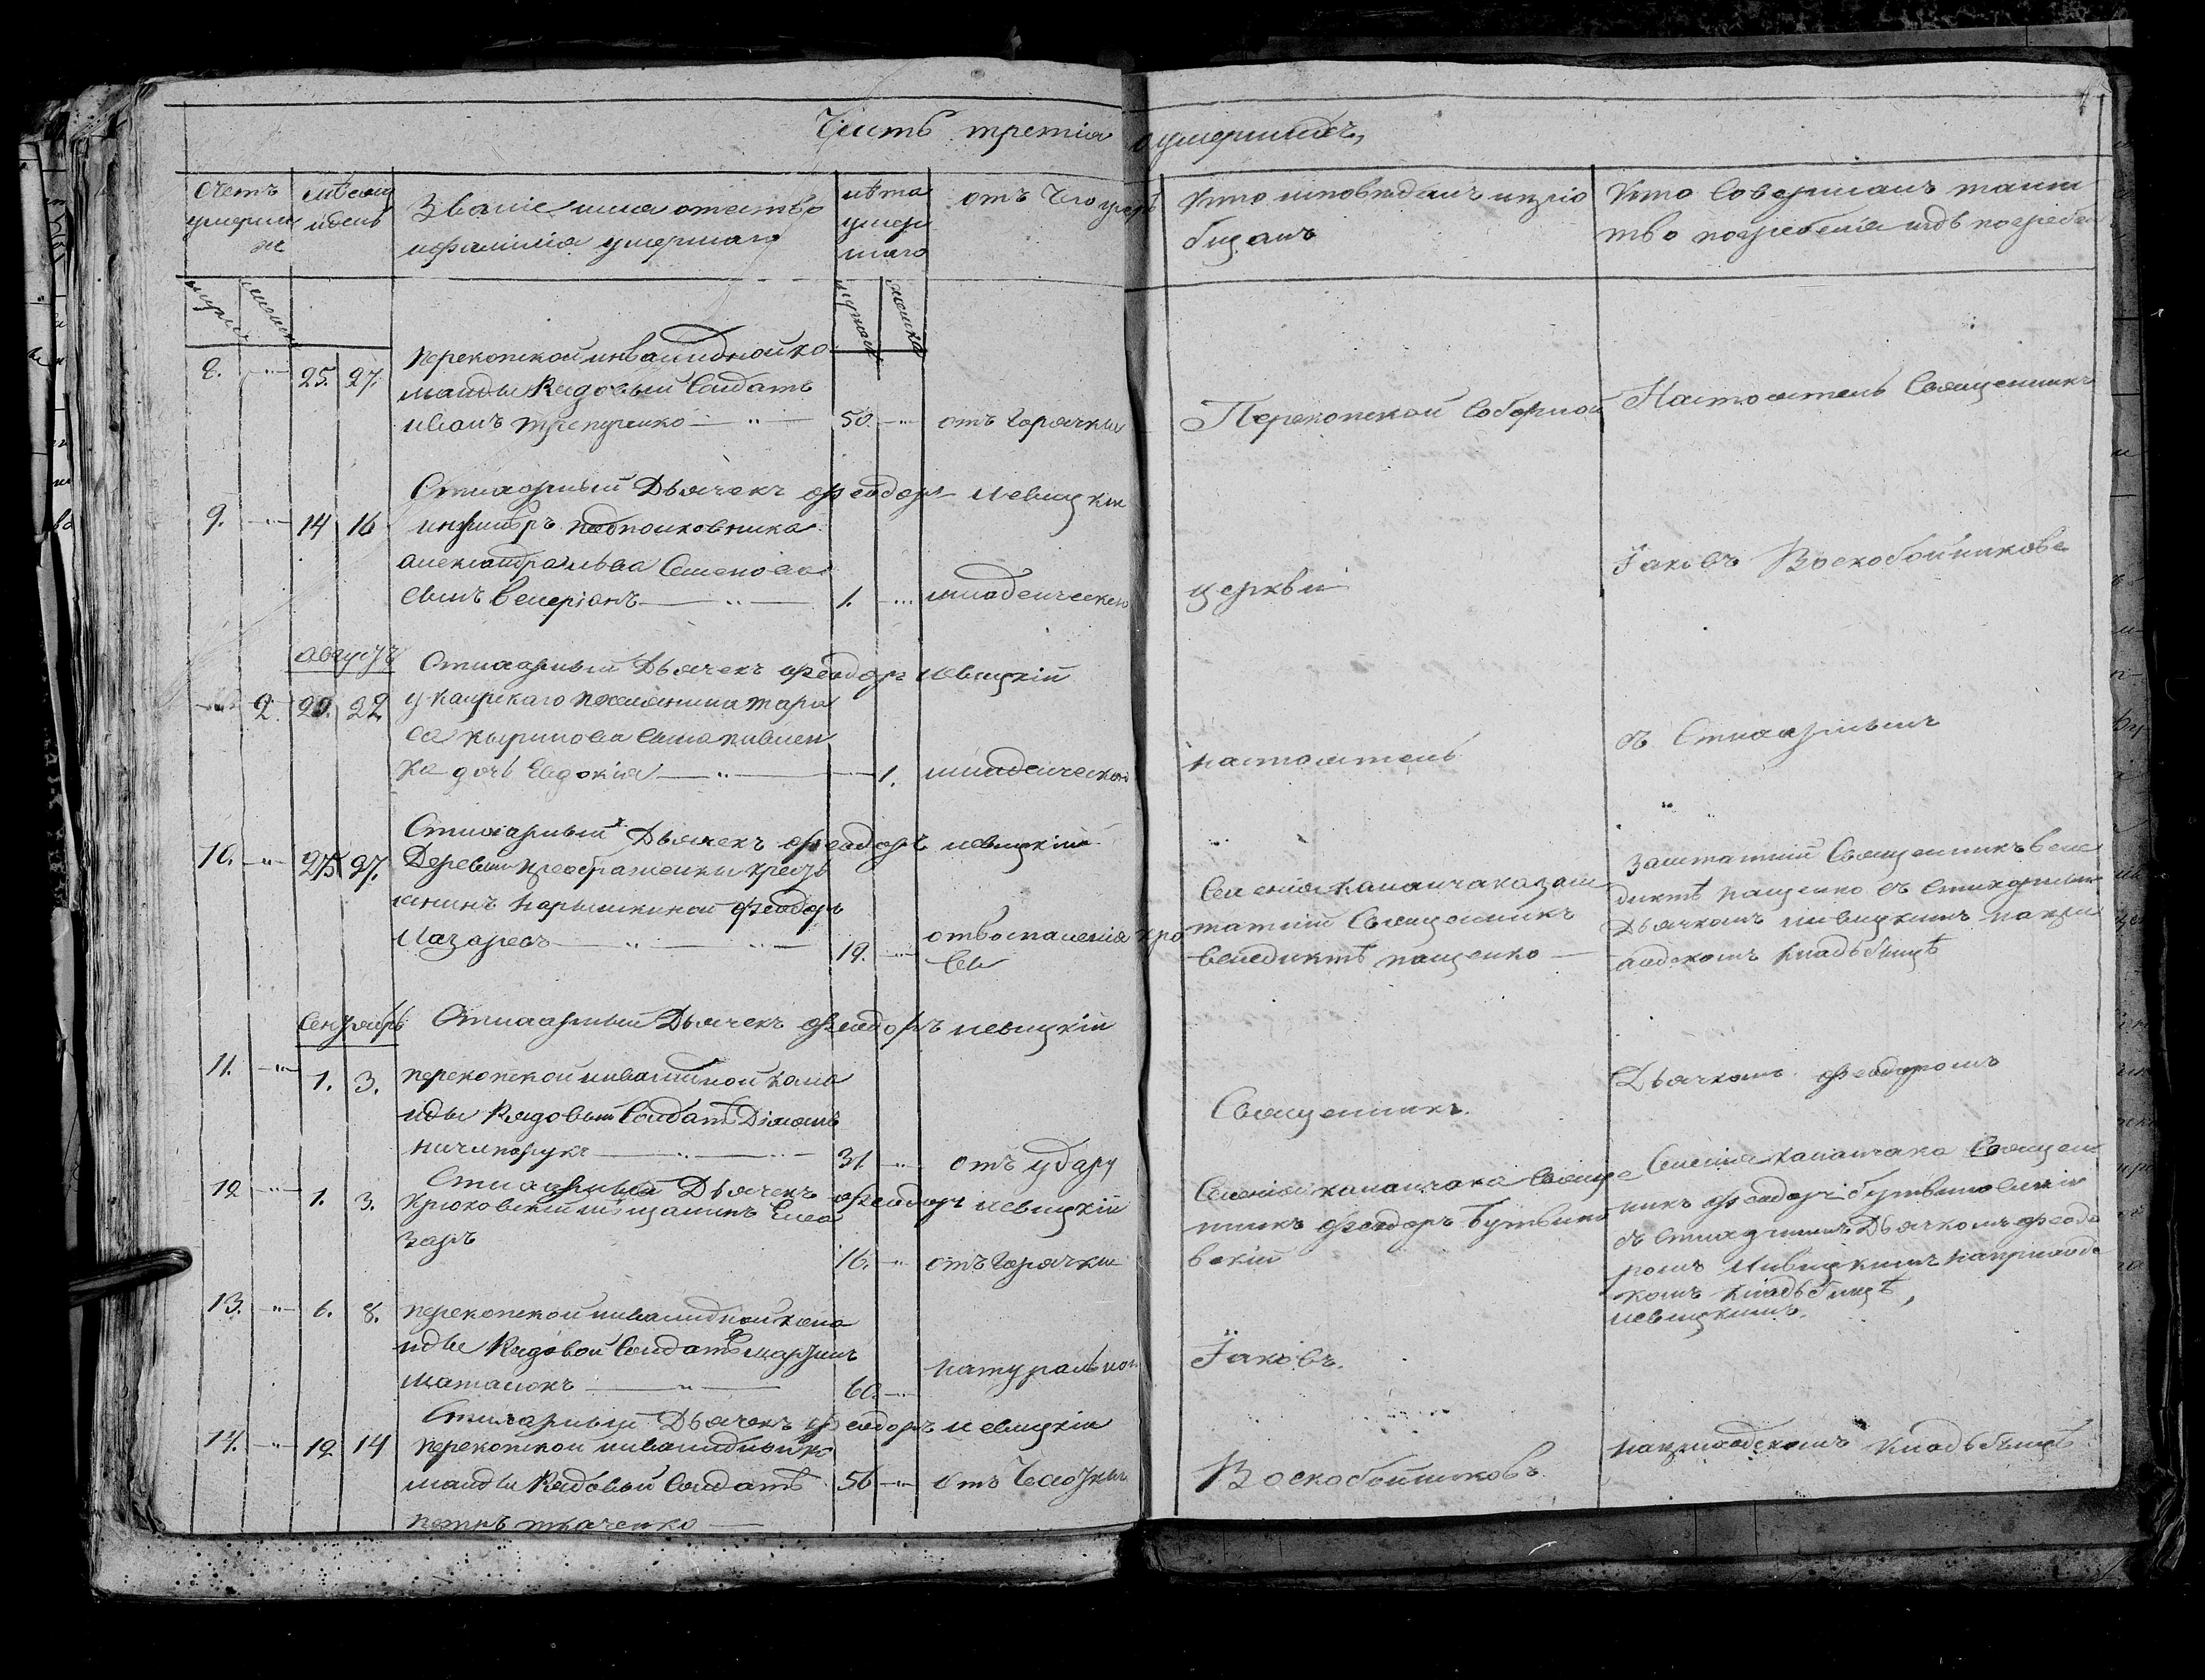 Часть третіа о умершихъ
Счетъ умершихъ
мѣсяцъ и день
Званіе имя отество
ифамиліа умершаго
лѣта умершаго
отъ чего умеръ
Кто исповѣдалъ ипріо
бщалъ
Кто Совершалъ таин
тво погребеніа игдѣ погребен
8. 25. 27. перекопской инвалидной ко
манды Рядовый Солдатъ
иванъ 50. отъ горячки
Перекопской Соборной
Настоятель Священникъ
Стихарный Дьячекъ феодоръ левицкій
9. 14 16 инжинѣръ подполковника
александра львва Семенова
Сынъ велеріанъ 1. младенческой
церкви
Іаковъ Воскобойникове
августъ
Стихарный Дьячекъ феодоръ левицкій
2. 20. 22 у каирскаго поселянина тара
са
ка дочь Евдокіа 1. младенческой
настоятель
съ Стихарнымъ
Стихарный Дьячекъ феодоръ левицкій
10. 25 27. Деревни преображенки крест
янинъ нарышкиной феодоръ
Лазаревъ 19. отвоспаленіа кро
ви
Селеніа каланчака заш
татній Священникъ
венедиктъ пащенко
Заштатній Священникъ вене
диктъ пащенко съ Стихарным
Дьячкомъ левицкимъ на при
авдскомъ кладьбищѣ
Сентябрь
Стихарный Дьячекъ феодоръ левицкій
11. 1. 3. перекопской инвалидной кома
нды Рядовый Солдатъ Діаміанъ
ничипорукъ 31. отъ удару
Священникъ.
Дьячкомъ феодоромъ
Стихарный Дьячекъ феодоръ левицкій
12 1. 3. крюковскій мѣщанинъ Елеа
заръ 16. отъ горячки
Селеніа каланчака Свяще
нникъ феодоръ Бутвино
вскій
Селеніа каланчака Священ
никъ феодоръ бутвиновскій
съ Стихарнымъ Дьячкомъ феодо
ромъ Левицкимъ наприходс
комъ кладьбищѣ
левицкимъ.
13. 6. 8. перекопской инвалидной кома
нды Рядовой Солдатъ мартинъ
маталокъ 60. натуральной
Іаковъ.
Стихарный Дьячекъ феодоръ левицкій
14. 12 14 перекопской инвалидный ко
манды Рядовый Солдатъ 56 отъ Чахотки
петръ ткаченко
Воскобойниковъ
наприходскомъ кладьбищѣ